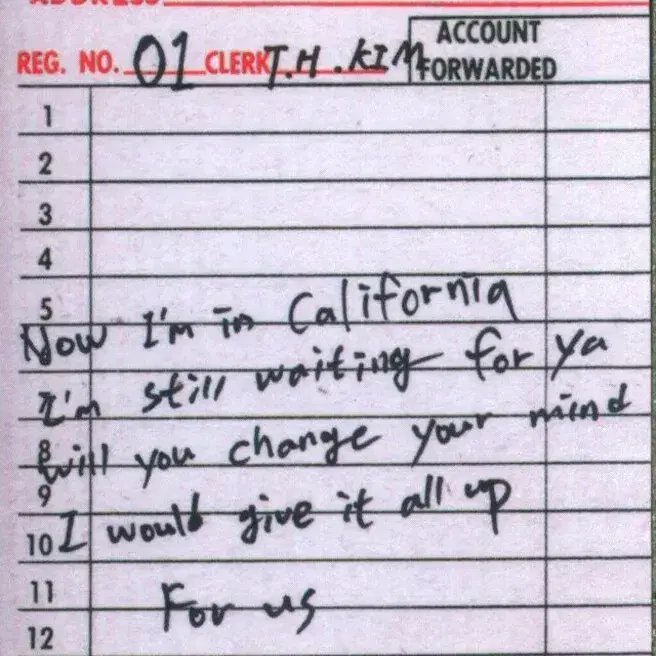 ADDRESS
REG. NO. 01 CLERK T.H.KIM
ACCOUNT
FORWARDED
1
2
3
4
5
Now I'm in California
I'm still waiting for ya
8
will you change your mind
9
I would give it all up
10
11
For us
12